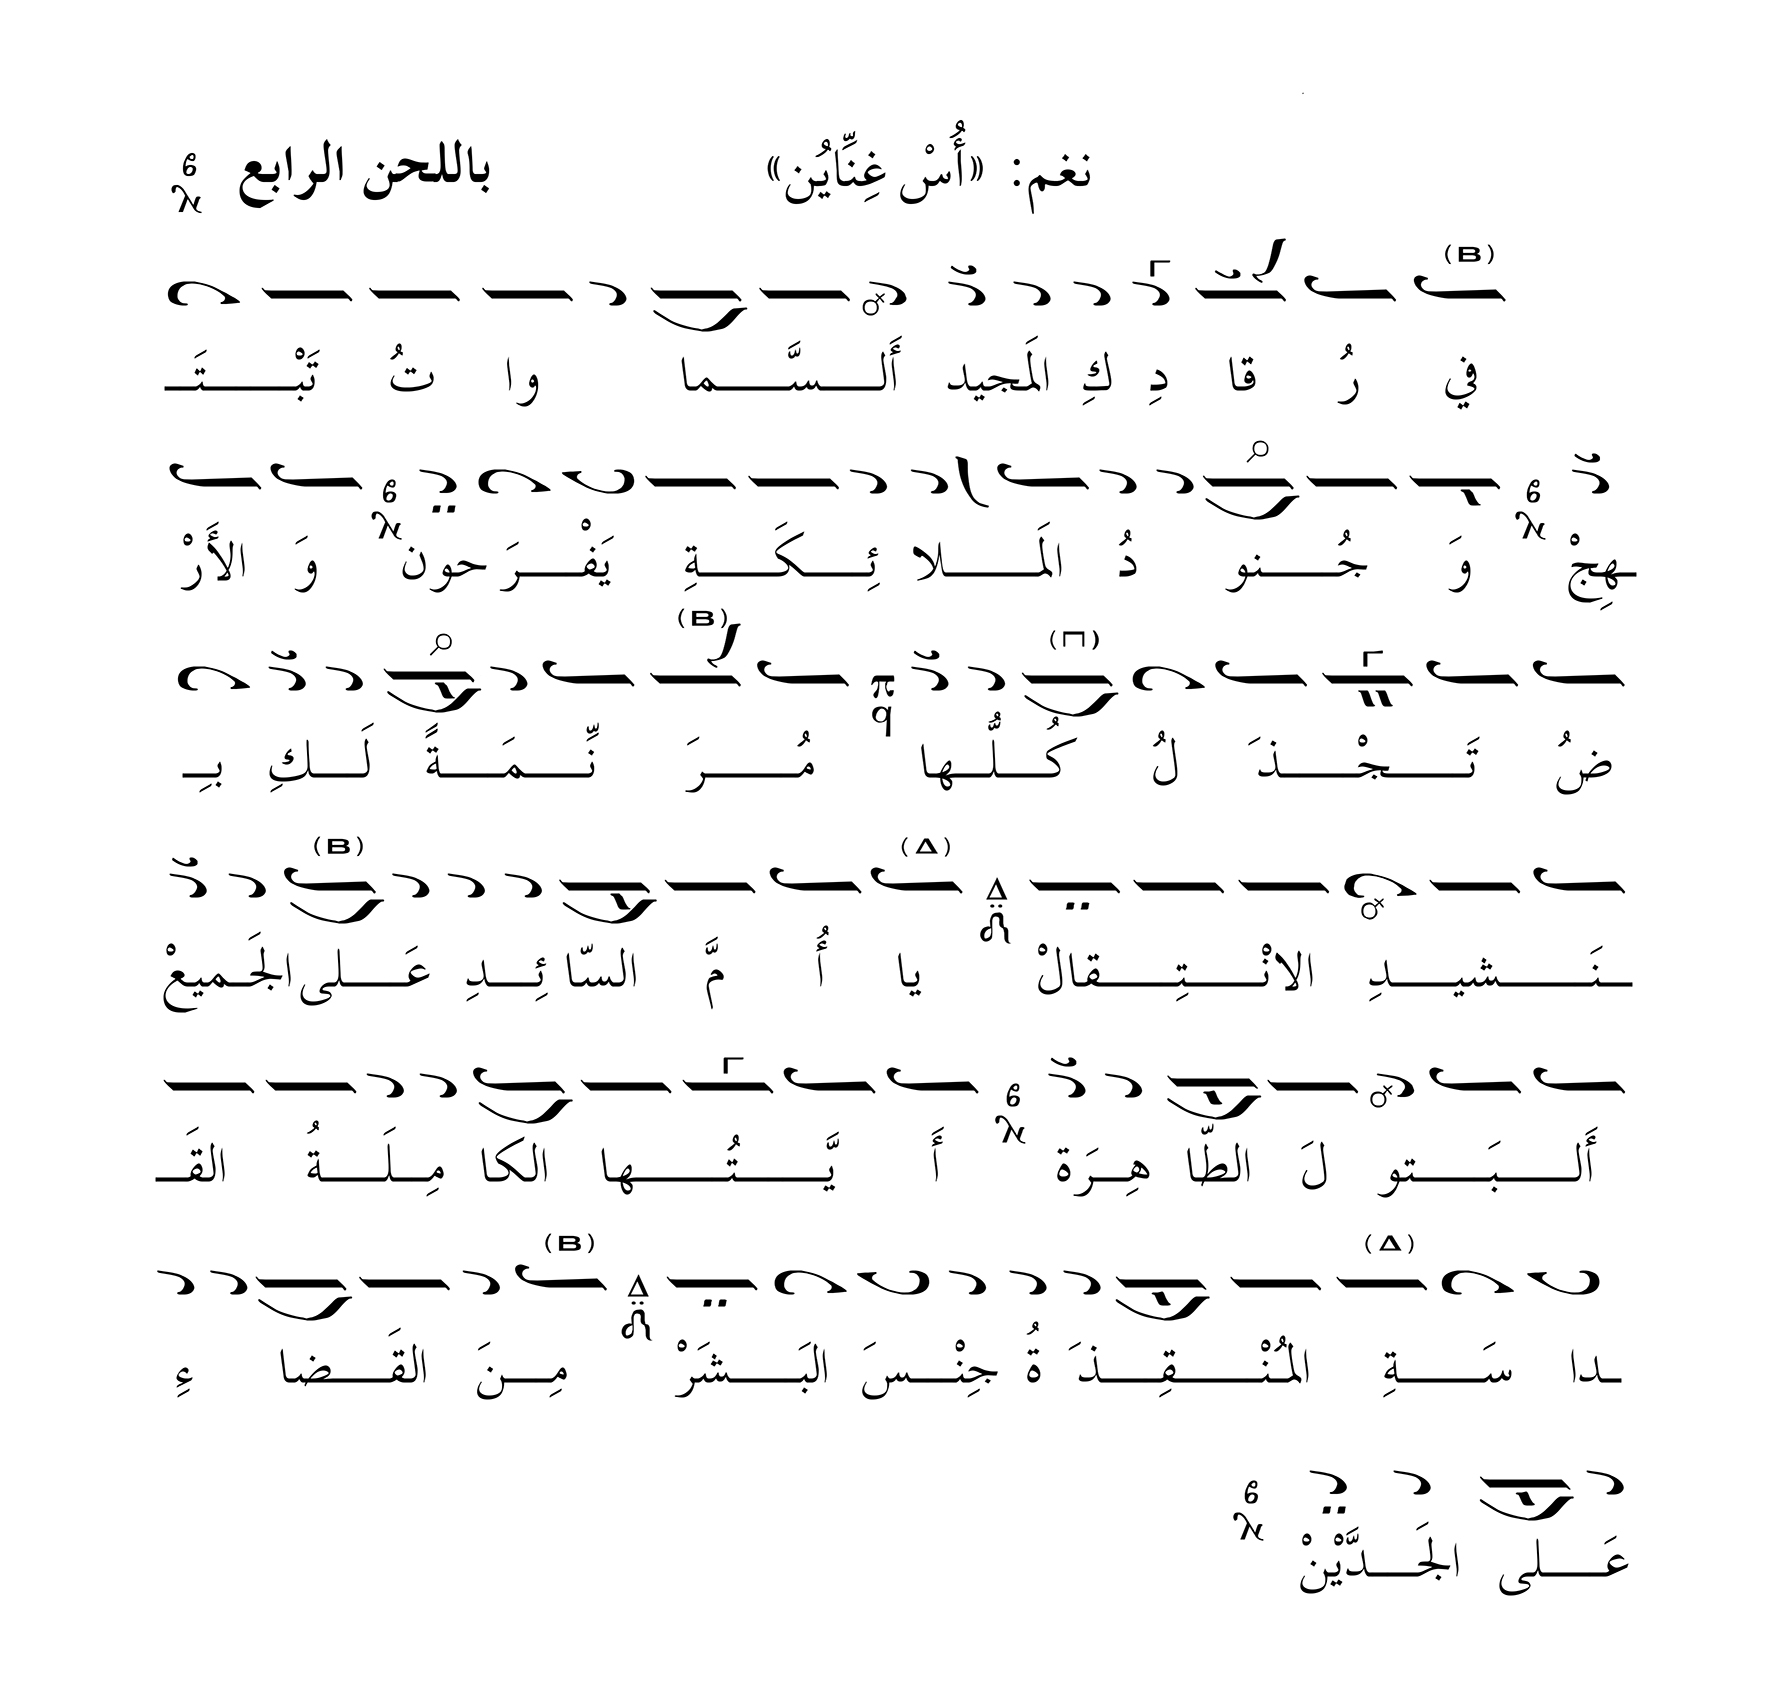 نغم: «أُسْ غِنِّايُن» باللحن الرابع
(B)
في رُ قا دِ كِ المَجيد أَلـــسَّـــما وا تُ تَبْـــتَـ
ـهِجْ وَ جُـــنو دُ المَـــلا ئِـــكَـــةِ يَفْـــرَحون وَ الأَرْ
(Π) (B)
ضُ تَـــجْـــذَ لُ كُـــلُّـــها مُـــرَ نِّـــمَـــةً لَـــكِ بِـ
(Δ) (B)
ـنَـــشيـــدِ الانْـــتِـــقالْ يا أُ مَّ السّا ئِـــدِ عَـــلى الجَـــميعْ
أَلـــبَـــتو لَ الطّا هِـــرَة أَ يَّـــتُـــها الكا مِـــلَـــةُ القَـ
(Δ) (B)
ـدا سَـــةِ المُنْـــقِـــذَ ةُ جِنْـــسَ البَـــشَرْ مِـــنَ القَـــضا ءِ
عَـــلى الجَـــدَّيْنْ